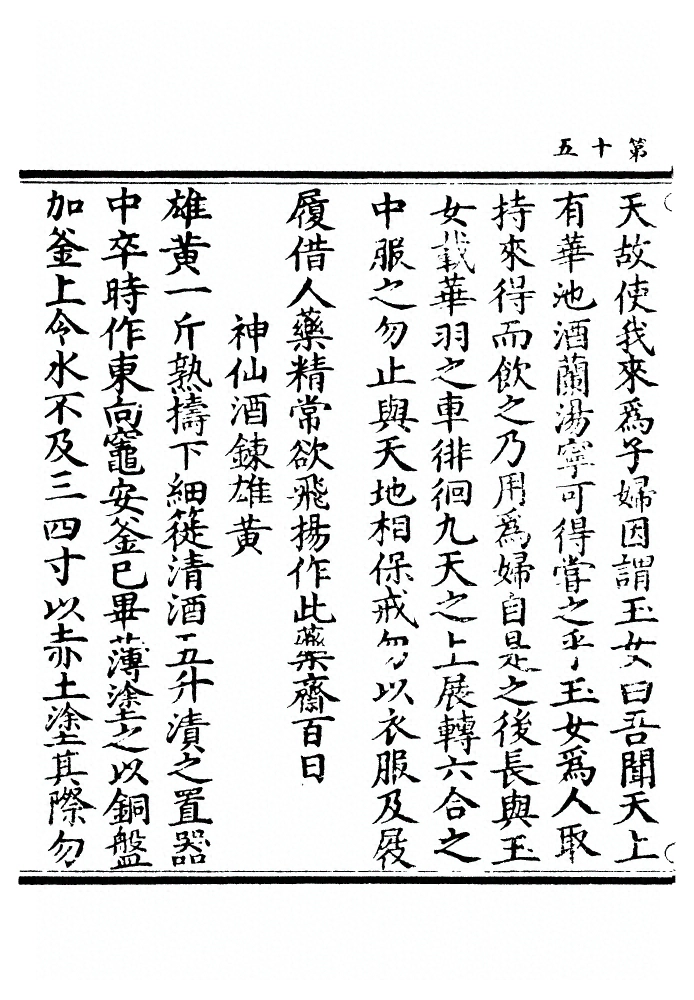 第十五
天故使我來爲子婦因謂玉女曰吾聞天上
有華池酒蘭湯寧可得嘗之乎玉女爲人取
持來得而飲之乃用爲婦自是之後長與玉
女載華羽之車徘徊九天之上展轉六合之
中服之勿止與天地相保戒勿以衣服及屐
履借人藥精常欲飛揚作此藥齋百日
神仙酒鍊雄黃
雄黃一斤熟擣下細簁清酒五升漬之置器
中卒時作東向竈安釜已畢薄塗之以銅盤
加釜上令水不及三四寸以赤土塗其際勿